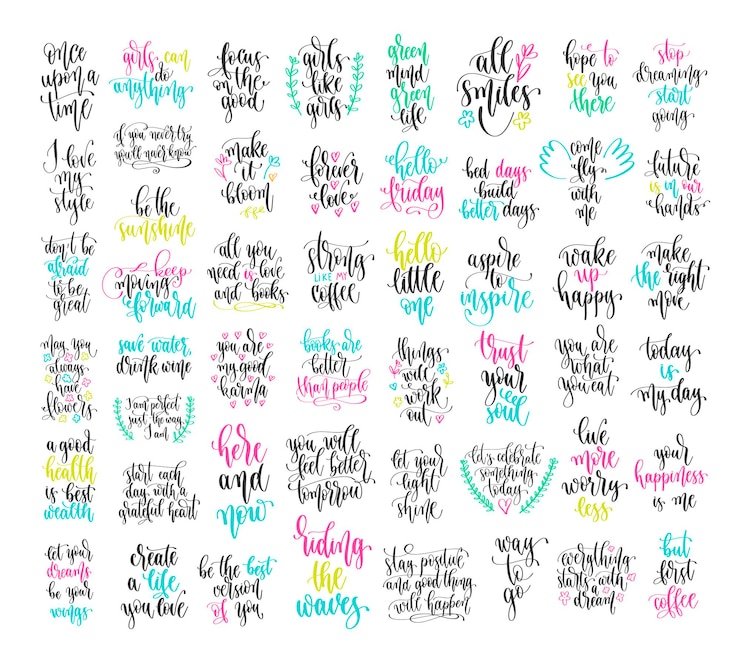 once
upon a
time
girls can
do
anything
focus
on the
good
girls
like
girls
green
mind
green
life
all
smiles
hope to
see you
there
stop
dreaming
start
going
I love
my
style
if you never try
you'll never know
be the
sunshine
make
it
bloom
forever
love
hello
friday
bed days
build
better days
come
fly
with
me
future
is in our
hands
don't be
afraid
to be
great
keep
moving
forward
all you
need is love
and books
strong
LIKE MY
coffee
hello
little
one
aspire
to
inspire
wake
up
happy
make
the right
move
may you
always
have
flowers
save water,
drink wine
I am perfect
just the way
I am
you are
my good
karma
books are
better
than people
things
will
work
out
trust
your
soul
you are
what
you eat
today
is
my day
a good
health
is best
wealth
start each
day with a
grateful heart
here
and
now
you will
feel better
tomorrow
let your
light
shine
let's celebrate
something
today
live
more
worry
less
your
happiness
is me
let your
dreams
be your
wings
create
a life
you love
be the best
version
of you
riding
the
waves
stay positive
and good thing
will happen
way
to
go
everything
starts with
a dream
but
first
coffee